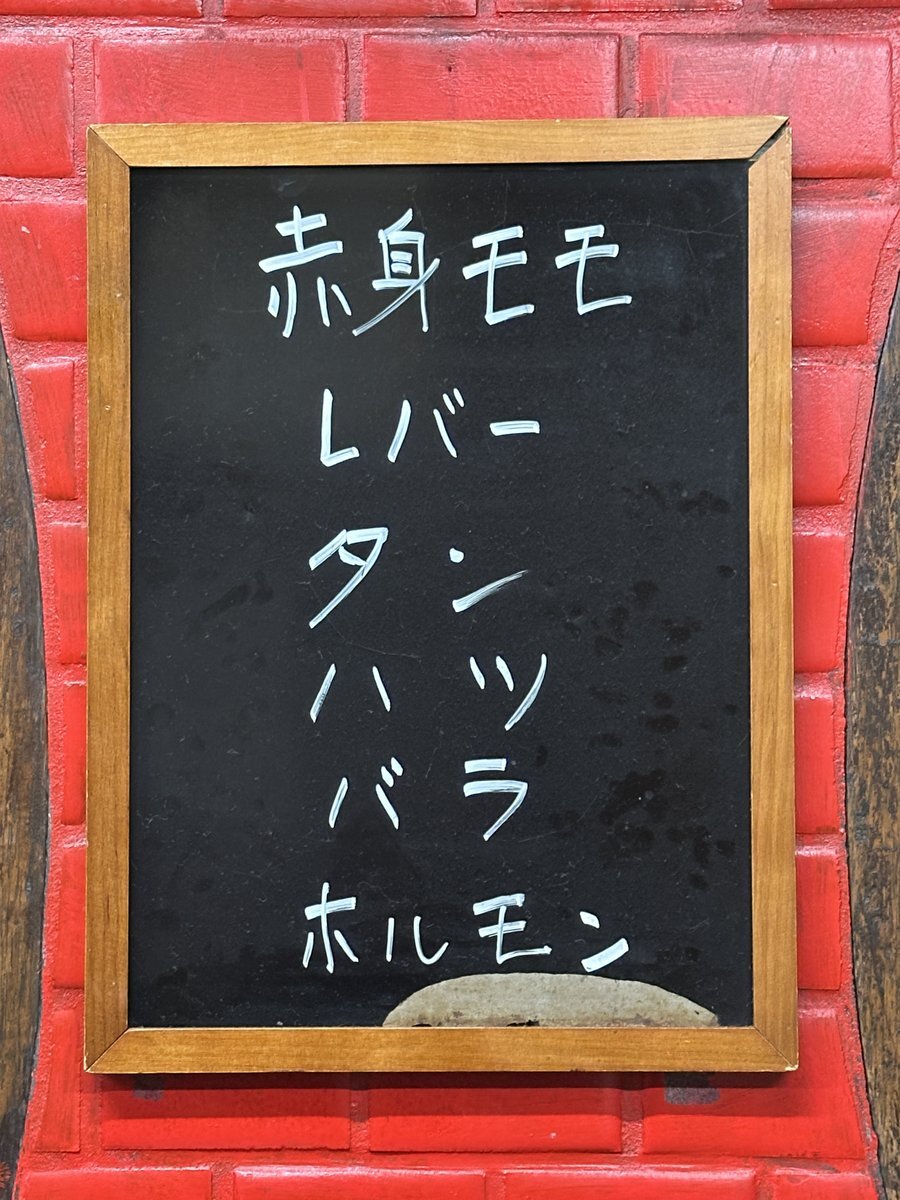 赤身モモ
レバー
タン
ハツ
バラ
ホルモン